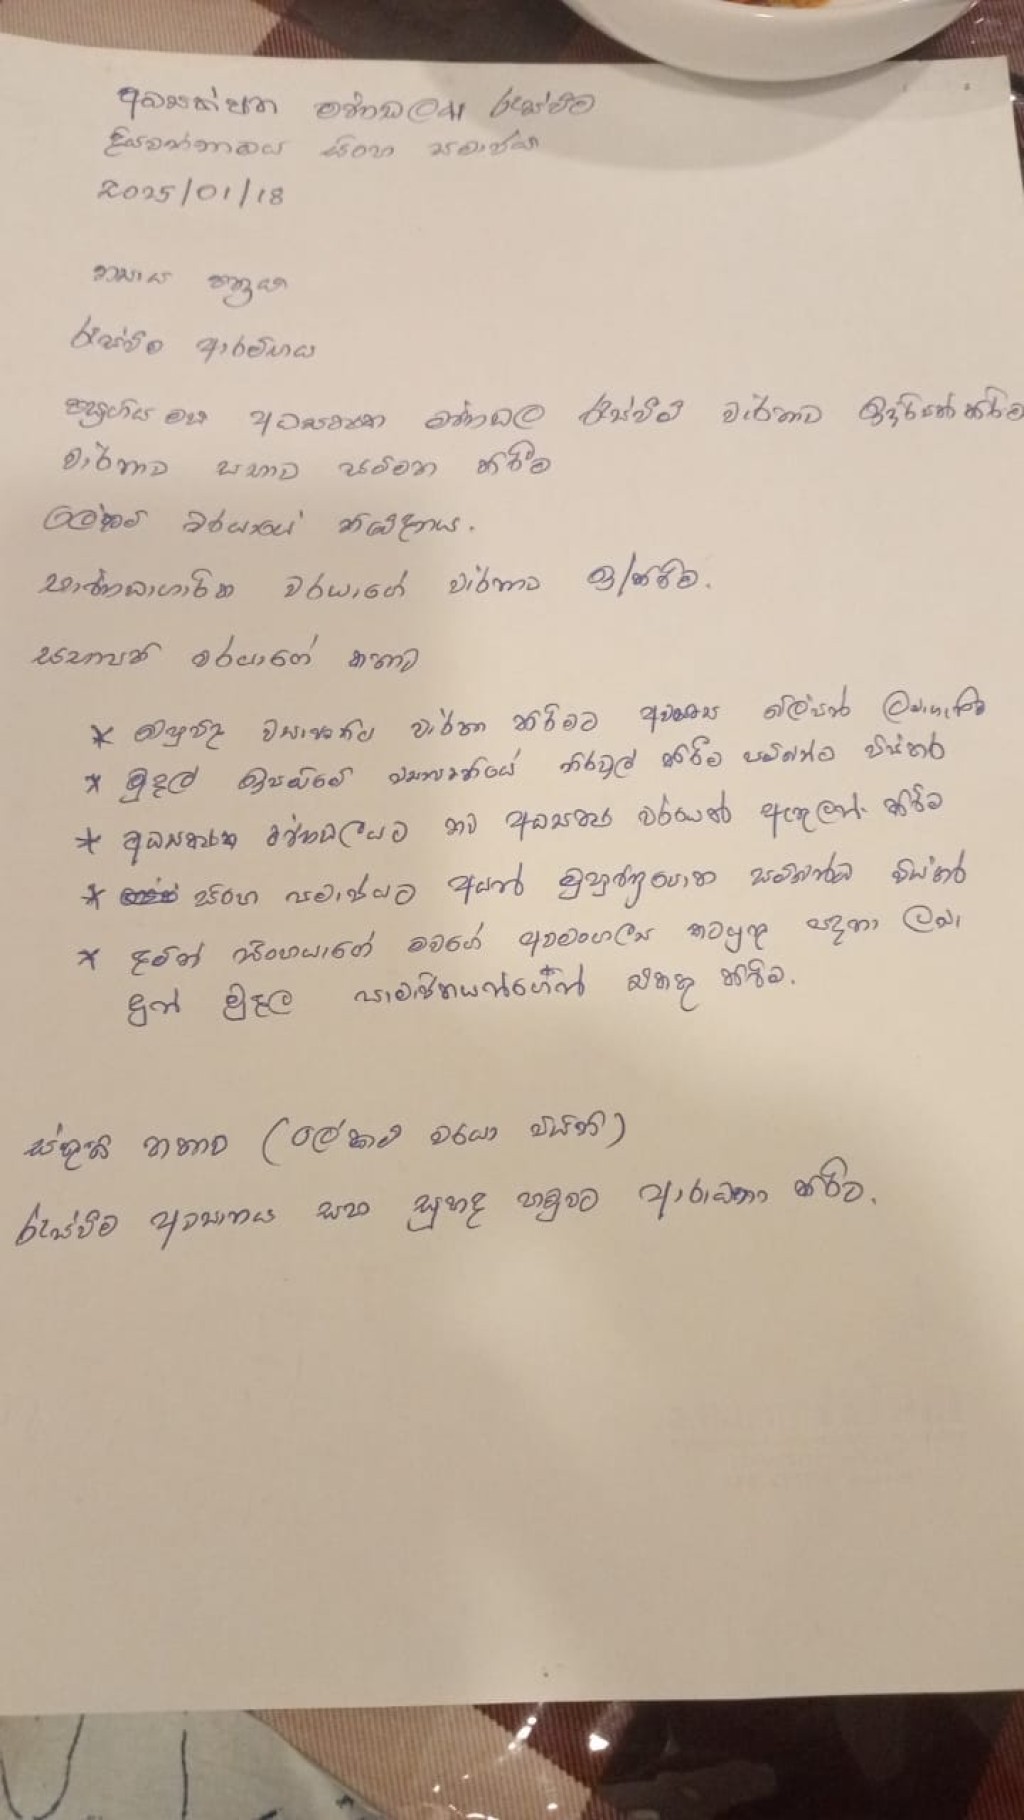 අධ්‍යක්ෂක මණ්ඩල රැස්වීම
දියවන්නාඔය සිංහ සමාජය
2025/01/18
න්‍යාය පත්‍රය
රැස්වීම ආරම්භය
පසුගිය මස අධ්‍යක්ෂක මණ්ඩල රැස්වීම් වාර්තාව ඉදිරිපත් කිරීම
වාර්තාව සභාව සම්මත කිරීම
ලේකම් වරයාගේ නිවේදනය.
භාණ්ඩාගාරික වරයාගේ වාර්තාව ඉ/කිරීම.
සභාපති වරයාගේ කතාව
* ව්‍යාපෘති වාර්තා කිරීමට අවශ්‍ය
* මුදල් ඉපයීමේ ව්‍යාපෘතියේ නිරවුල් කිරීම සම්බන්ධ විස්තර
* අධ්‍යක්ෂක මණ්ඩලයට නව අධ්‍යක්ෂ වරයන් ඇතුලත් කිරීම
* සිංහ සමාජයට අයත් මුහුණු පොත සම්බන්ධ විස්තර
* දමිත් සිංහයාගේ මවගේ අවමංගල්‍ය කටයුතු සඳහා ලබා
දුන් මුදල සාමාජිකයන්ගෙන් එකතු කිරීම.
ස්තුති කතාව (ලේකම් වරයා විසින්)
රැස්වීම අවසානය සහ සුහද හමුවට ආරාධනා කිරීම.